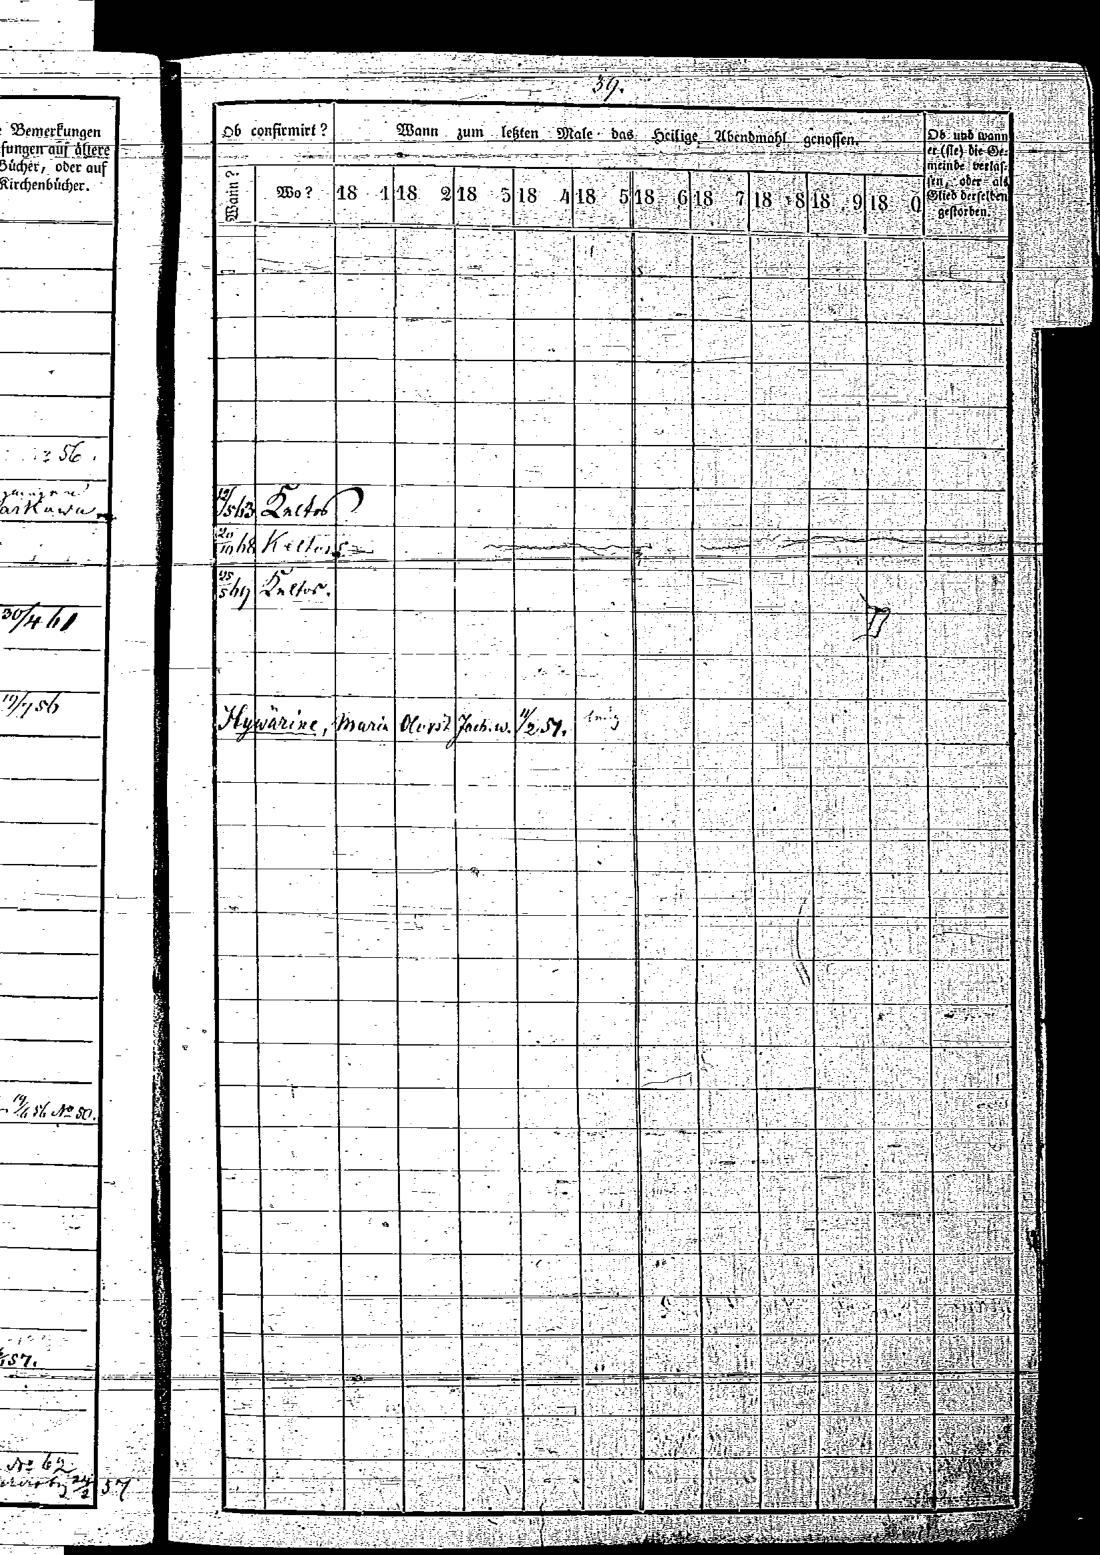 Bemerkungen
fungen auf ältere
Bücher, oder auf
Kirchenbücher.
56.
30/4 61
19/7 56
19/6 56 No 50.
57.
No 62
24/2 57
39.
Ob confirmirt?
Wann zum letzten Male das Heilige Abendmahl genossen.
Ob und wann
er (sie) die Ge-
meinde verlas-
sen, oder als
Glied derselben
gestorben.
Wann?
Wo?
18 1 18 2 18 3 18 4 18 5 18 6 18 7 18 8 18 9 18 0
12/5 63 Keltos
20/10 68 Keltos
25/5 69 Keltos.
Hywärine, Maria Jach. w. 11/2 57.